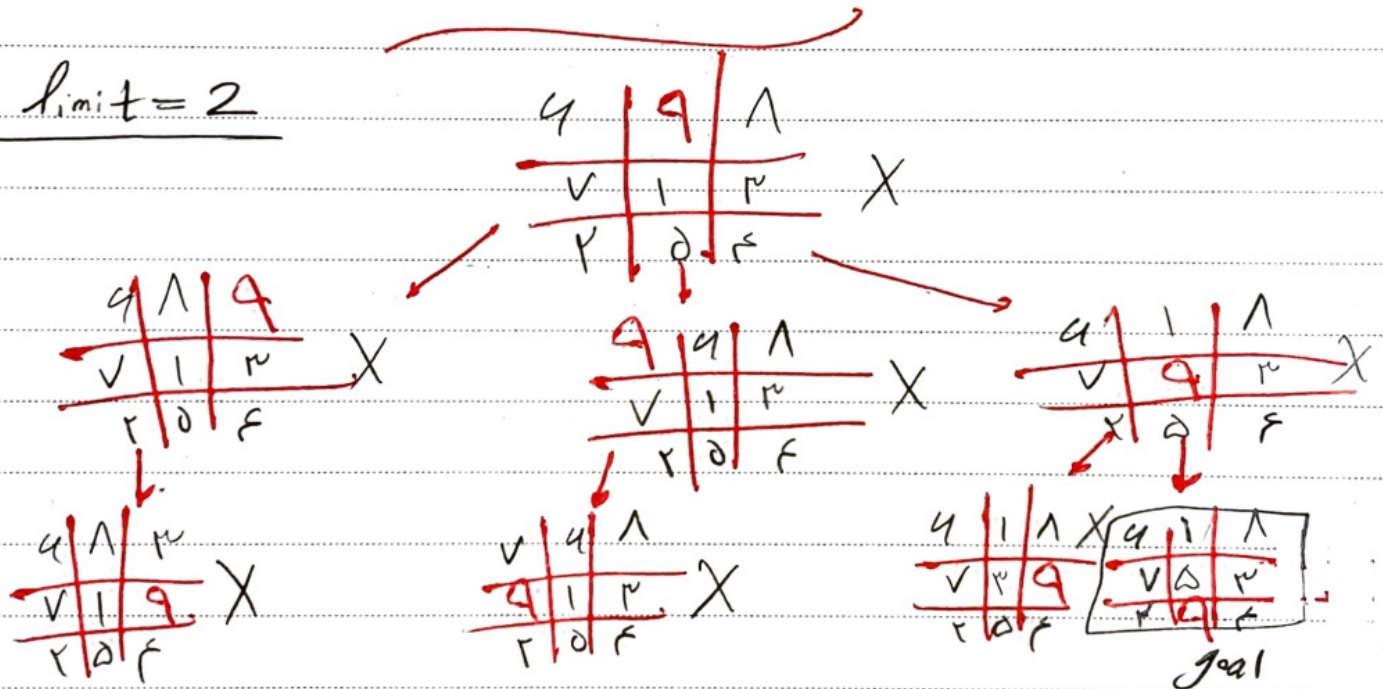 limit = 2
۶ ۹ ۸
۷ ۱ ۳ X
۲ ۵ ۴
۶ ۸ ۹
۷ ۱ ۳ X
۲ ۵ ۴
۹ ۶ ۸
۷ ۱ ۳ X
۲ ۵ ۴
۶ ۱ ۸
۷ ۹ ۳ X
۲ ۵ ۴
۶ ۸ ۳
۷ ۱ ۹ X
۲ ۵ ۴
۷ ۶ ۸
۹ ۱ ۳ X
۲ ۵ ۴
۶ ۱ ۸ X
۷ ۳ ۹
۲ ۵ ۴
۶ ۱ ۸
۷ ۵ ۳
۲ ۹ ۴
goal